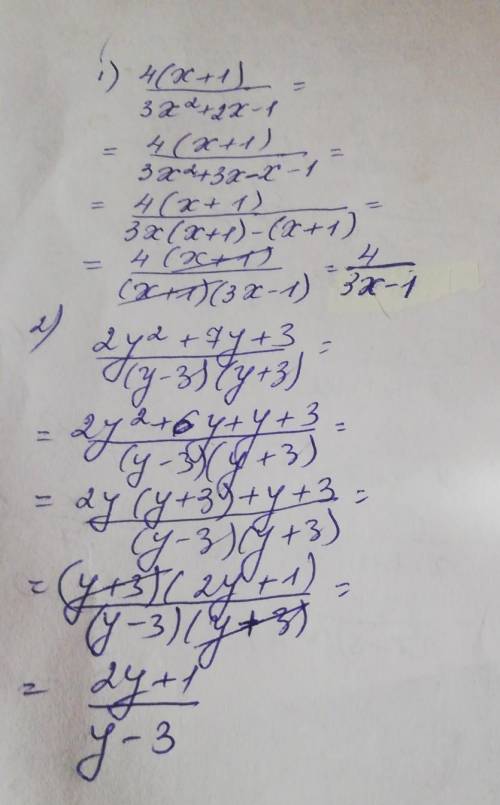 1) 4(x+1) / 3x²+2x-1 =
= 4(x+1) / 3x²+3x-x-1 =
= 4(x+1) / 3x(x+1)-(x+1) =
= 4(x+1) / (x+1)(3x-1) = 4 / 3x-1
2) 2y²+7y+3 / (y-3)(y+3) =
= 2y²+6y+y+3 / (y-3)(y+3) =
= 2y(y+3)+y+3 / (y-3)(y+3) =
= (y+3)(2y+1) / (y-3)(y+3) =
= 2y+1 / y-3